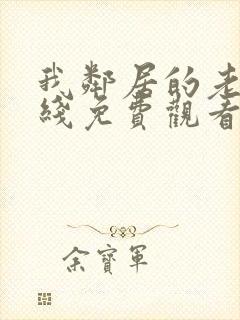 我鄰居的老
綫免費觀看
余寶軍